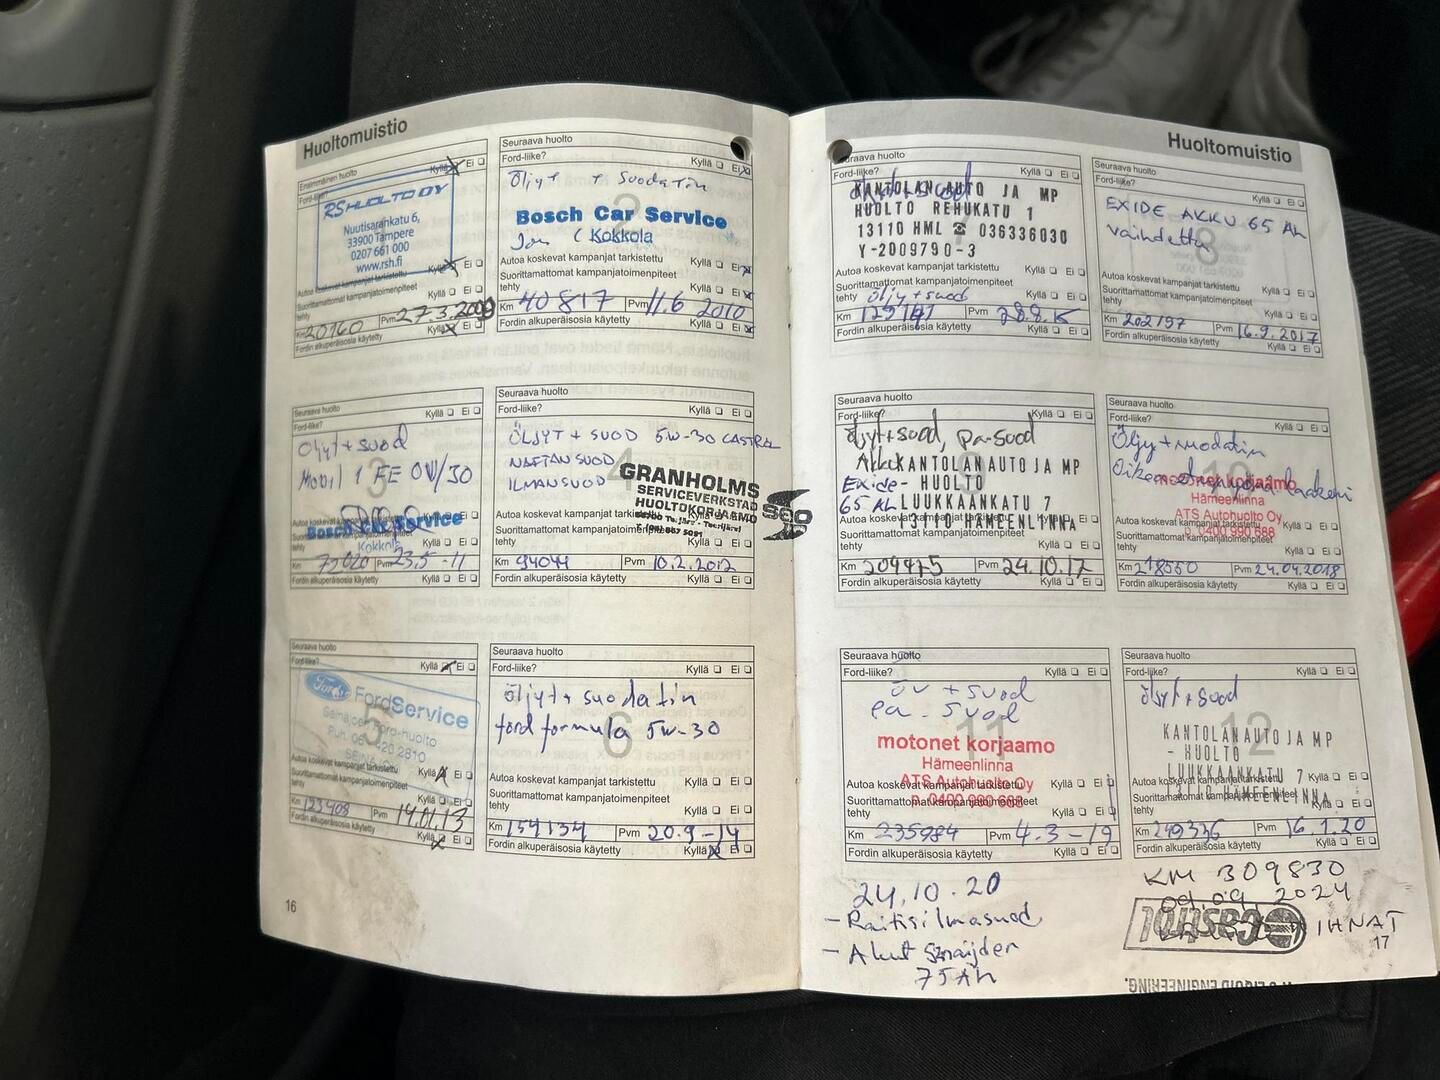 Huoltomuistio
Ensimmäinen huolto
Ford-liike?
Kyllä Ei
RS HUOLTO OY
Nuutisarankatu 6,
33900 Tampere
0207 661 000
www.rsh.fi
Autoa koskevat kampanjat tarkistettu
Kyllä Ei
Suorittamattomat kampanjatoimenpiteet
tehty
Kyllä Ei
Km 20160 Pvm 27.3.2009
Fordin alkuperäisosia käytetty Kyllä Ei
Seuraava huolto
Ford-liike?
Kyllä Ei
Öljyt + Suodatin
2
Bosch Car Service
Kokkola
Autoa koskevat kampanjat tarkistettu
Kyllä Ei
Suorittamattomat kampanjatoimenpiteet
tehty
Kyllä Ei
Km 40817 Pvm 11.6 2010
Fordin alkuperäisosia käytetty Kyllä Ei
Seuraava huolto
Ford-liike?
Kyllä Ei
Öljyt + suod
Mobil 1 FE 0W/30
3
Bosch Car Service
Kokkola
Autoa koskevat kampanjat tarkistettu
Kyllä Ei
Suorittamattomat kampanjatoimenpiteet
tehty
Kyllä Ei
Km Pvm 23.5 -11
Fordin alkuperäisosia käytetty Kyllä Ei
Seuraava huolto
Ford-liike?
Kyllä Ei
ÖLJYT + SUOD 5W-30 CASTROL
NAFTAN SUOD
ILMANSUOD
4
GRANHOLMS
SERVICEVERKSTAD
HUOLTOKORJAAMO
SEO
Autoa koskevat kampanjat tarkistettu
Kyllä Ei
Suorittamattomat kampanjatoimenpiteet
tehty
Kyllä Ei
Km 94044 Pvm 10.2.2012
Fordin alkuperäisosia käytetty Kyllä Ei
Seuraava huolto
Ford-liike?
Kyllä Ei
Ford FordService
5
Autoa koskevat kampanjat tarkistettu
Kyllä Ei
Suorittamattomat kampanjatoimenpiteet
tehty
Kyllä Ei
Km 123408 Pvm 14.01.13
Fordin alkuperäisosia käytetty Kyllä Ei
Seuraava huolto
Ford-liike?
Kyllä Ei
öljyt + suodatin
ford formula 5w-30
6
Autoa koskevat kampanjat tarkistettu
Kyllä Ei
Suorittamattomat kampanjatoimenpiteet
tehty
Kyllä Ei
Km 154134 Pvm 20.9-14
Fordin alkuperäisosia käytetty Kyllä Ei
16
Huoltomuistio
Seuraava huolto
Ford-liike?
Kyllä Ei
KANTOLAN AUTO JA MP
HUOLTO REHUKATU 1
13110 HML ☎ 036336030
Y-2009790-3
Autoa koskevat kampanjat tarkistettu
Kyllä Ei
Suorittamattomat kampanjatoimenpiteet
tehty öljy + suod
Kyllä Ei
Km Pvm 28.8.15
Fordin alkuperäisosia käytetty Kyllä Ei
Seuraava huolto
Ford-liike?
Kyllä Ei
EXIDE AKKU 65 Ah
vaihdettu
8
Autoa koskevat kampanjat tarkistettu
Kyllä Ei
Suorittamattomat kampanjatoimenpiteet
tehty
Kyllä Ei
Km 202197 Pvm 16.9.2017
Fordin alkuperäisosia käytetty Kyllä Ei
Seuraava huolto
Ford-liike?
Kyllä Ei
öljyt+suod, pa-suod
Akku KANTOLAN AUTO JA MP
Exide - HUOLTO
65 Ah LUUKKAANKATU 7
13110 HÄMEENLINNA
9
Autoa koskevat kampanjat tarkistettu
Suorittamattomat kampanjatoimenpiteet
tehty
Kyllä Ei
Km 209475 Pvm 24.10.17
Fordin alkuperäisosia käytetty Kyllä Ei
Seuraava huolto
Ford-liike?
Kyllä Ei
Öljy + suodatin
10
motonet korjaamo
Hämeenlinna
ATS Autohuolto Oy
p. 0400 990 688
Autoa koskevat kampanjat tarkistettu
Kyllä Ei
Suorittamattomat kampanjatoimenpiteet
tehty
Kyllä Ei
Km 218550 Pvm 24.04.2018
Fordin alkuperäisosia käytetty Kyllä Ei
Seuraava huolto
Ford-liike?
Kyllä Ei
öv + suod
pa - suod
11
motonet korjaamo
Hämeenlinna
ATS Autohuolto Oy
p. 0400 990 688
Autoa koskevat kampanjat tarkistettu
Kyllä Ei
Suorittamattomat kampanjatoimenpiteet
tehty
Kyllä Ei
Km 235984 Pvm 4.3-19
Fordin alkuperäisosia käytetty Kyllä Ei
Seuraava huolto
Ford-liike?
Kyllä Ei
öljyt + suod
12
KANTOLAN AUTO JA MP
- HUOLTO
LUUKKAANKATU 7
13110 HÄMEENLINNA
Autoa koskevat kampanjat tarkistettu
Kyllä Ei
Suorittamattomat kampanjatoimenpiteet
tehty
Kyllä Ei
Km 249336 Pvm 16.1.20
Fordin alkuperäisosia käytetty Kyllä Ei
24.10.20
- Raitisilmasuod
- Akut Sznajder
75 Ah
KM 309830
09.09.2024
Castrol
IHNAT
LIQUID ENGINEERING.
17